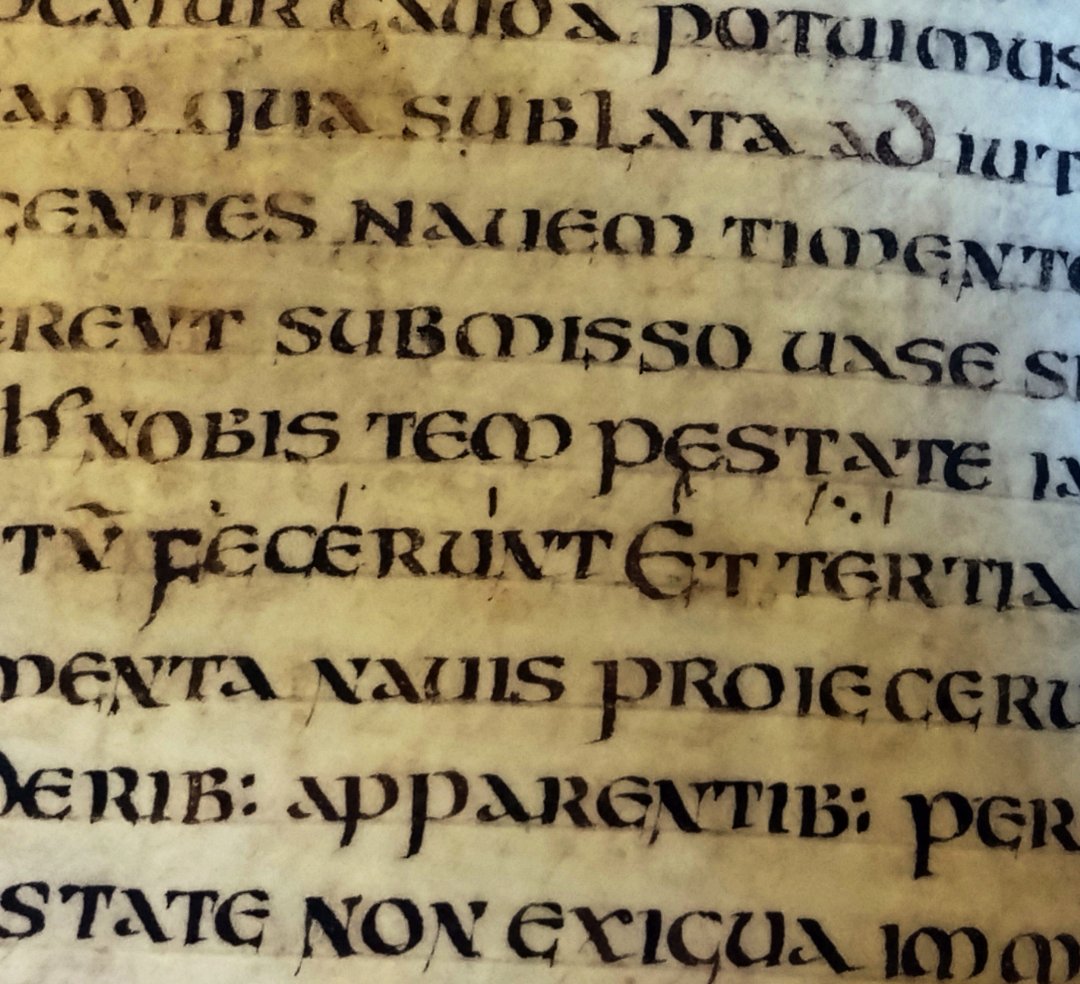 OCATUR CAUDA POTUIMUS
AM QUA SUBLATA AD IUT
CENTES NAUEM TIMENTE
ERENT SUBMISSO UASE SI
NOBIS TEMPESTATE IA
TŪ FECERUNT ET TERTIA
MENTA NAUIS PROIECERU
DERIB: APPARENTIB: PER
STATE NON EXIGUA IMM